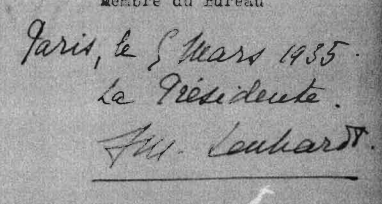 Membre du Bureau
Paris, le 5 Mars 1935.
La Présidente.
Lenhardt.